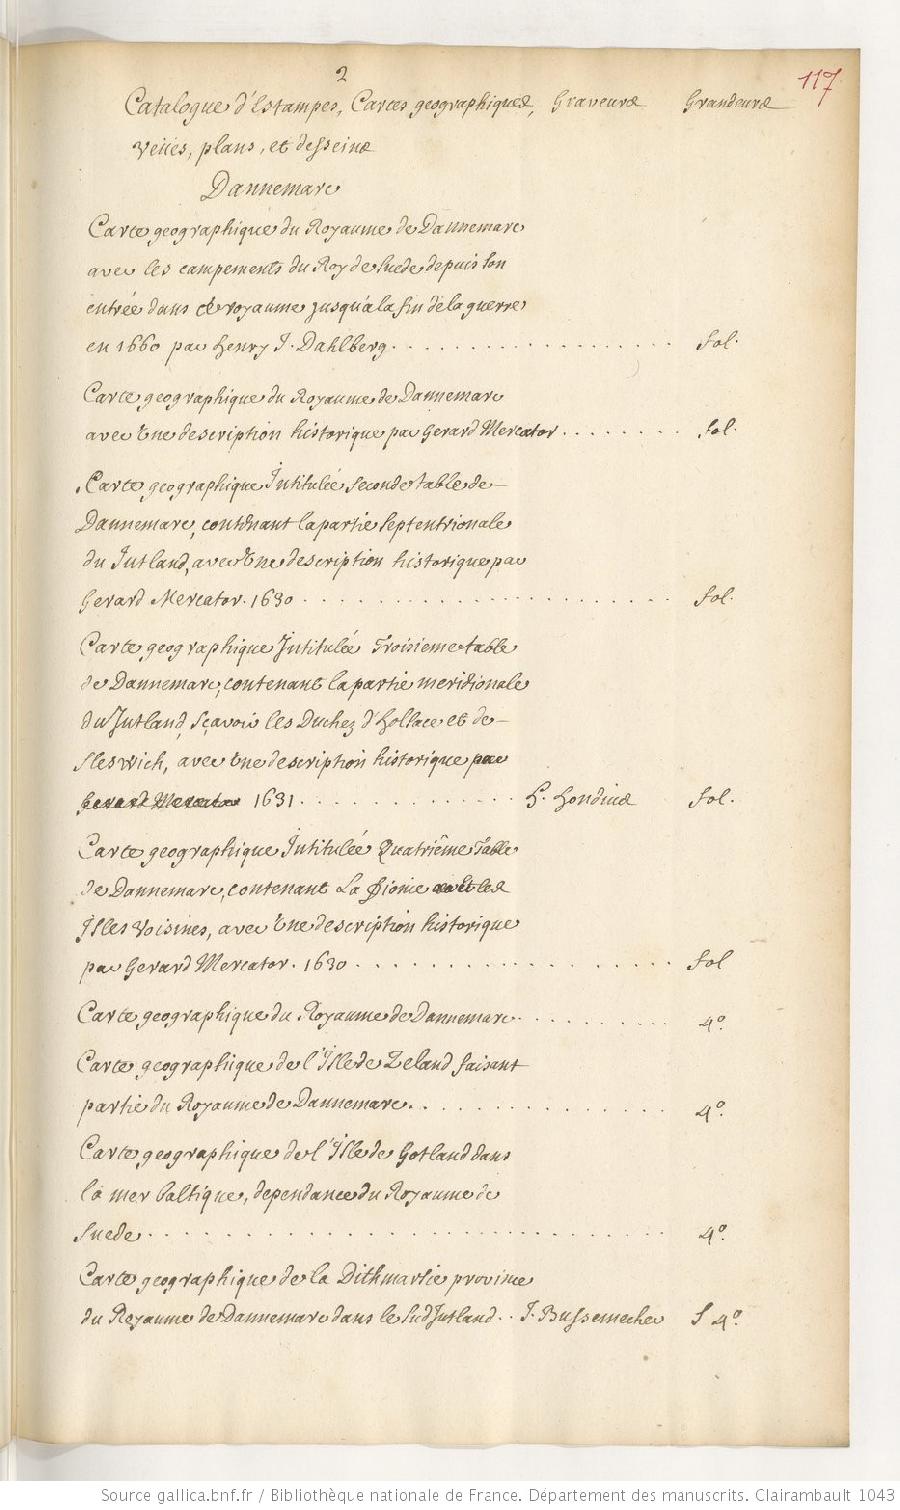 2
117
Catalogue d'Estampes, Cartes geographiques, Graveurs Grandeurs
veües, plans, et desseins
Dannemarc
Carte geographique du Royaume de Dannemarc
avec les campements du Roy de Suede depuis son
entrée dans ce royaume jusqu'a la fin de la guerre
en 1660 par Henry J. Dahlberg. . . . . . . . . . . . . . . . . . fol.
Carte geographique du Royaume de Dannemarc
avec Une description historique par Gerard Mercator . . . . . . . . fol.
Carte geographique Intitulée Seconde table de
Dannemarc, contenant la partie septentrionale
du Jutland, avec Une description historique par
Gerard Mercator. 1630 . . . . . . . . . . . . . . . . . . . . . . fol.
Carte geographique Intitulée Troisieme table
de Dannemarc, contenant la partie meridionale
du Jutland, sçavoir les Duchez d'Holsace et de
Sleswich, avec Une description historique par
Gerard Mercator 1631. . . . . . . . . . . . . . H. Hondius fol.
Carte geographique Intitulée Quatriême Table
de Dannemarc, contenant La Fionie et les
Isles Voisines, avec Une description historique
par Gerard Mercator. 1630 . . . . . . . . . . . . . . . . . . fol
Carte geographique du Royaume de Dannemarc. . . . . . . . . 4º.
Carte geographique de l'Isle de Zeland faisant
partie du Royaume de Dannemarc. . . . . . . . . . . . . . 4º.
Carte geographique de l'Isle de Gotland dans
la mer baltique, dependance du Royaume de
Suede . . . . . . . . . . . . . . . . . . . . . . . . . . . . . 4º.
Carte geographique de la Dithmarsie province
du Royaume de Dannemarc dans le Sud Jutland. . J. Bussemecher f 4º.
Source gallica.bnf.fr / Bibliothèque nationale de France. Département des manuscrits. Clairambault 1043